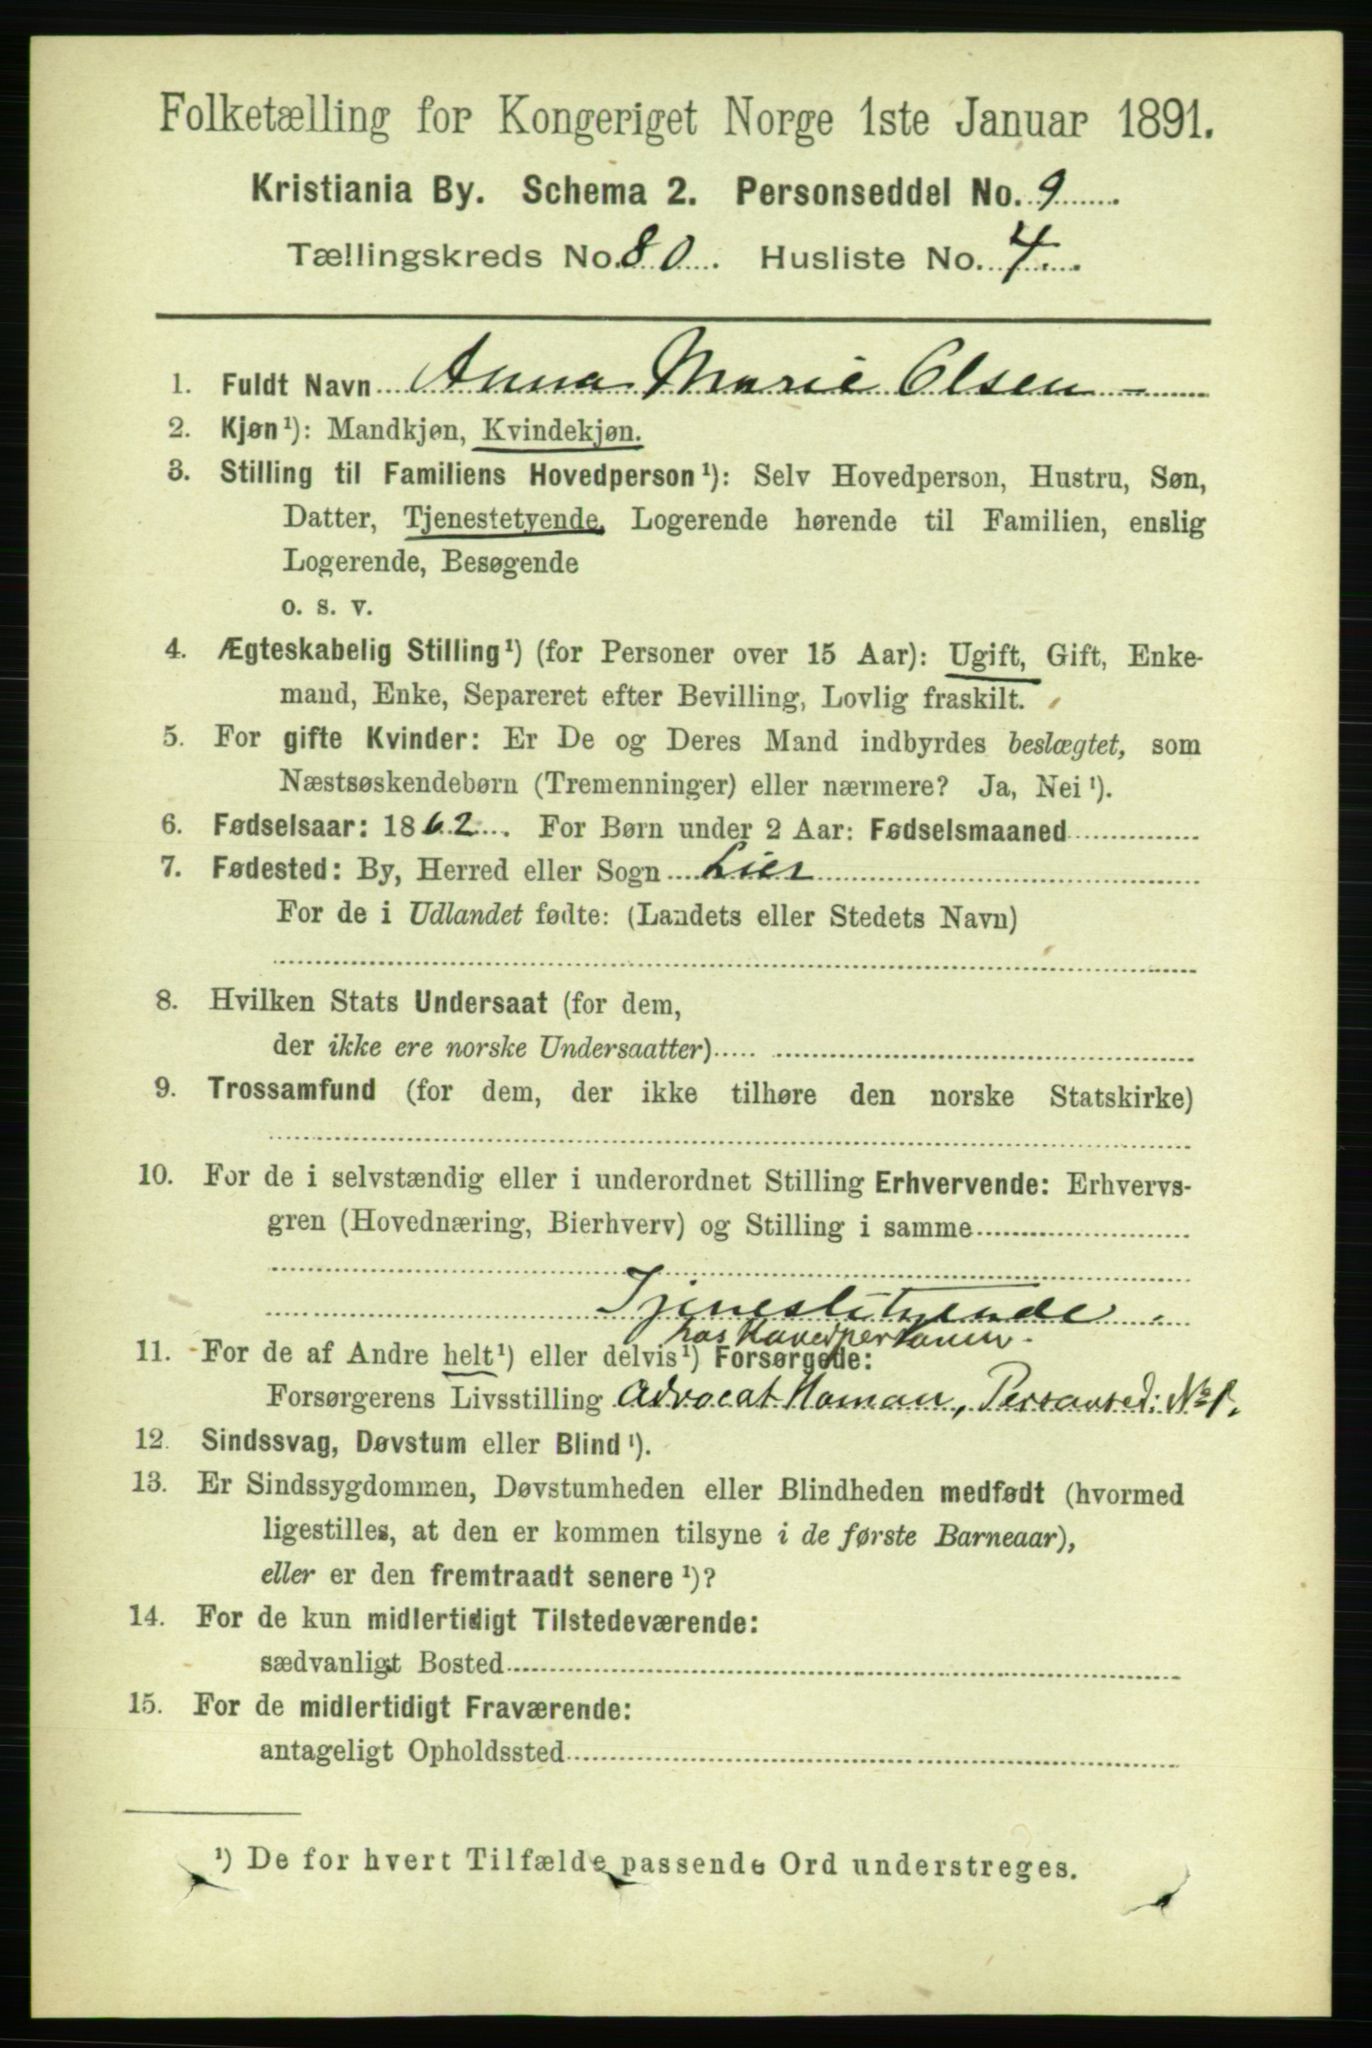 Folketælling for Kongeriget Norge 1ste Januar 1891.
Kristiania By. Schema 2. Personseddel No. 9
Tællingskreds No. 80. Husliste No. 4.
1. Fuldt Navn Anna Marie Olsen
2. Kjøn¹): Mandkjøn, Kvindekjøn.
3. Stilling til Familiens Hovedperson¹): Selv Hovedperson, Hustru, Søn,
Datter, Tjenestetyende, Logerende hørende til Familien, enslig
Logerende, Besøgende
o. s. v.
4. Ægteskabelig Stilling¹) (for Personer over 15 Aar): Ugift, Gift, Enke-
mand, Enke, Separeret efter Bevilling, Lovlig fraskilt.
5. For gifte Kvinder: Er De og Deres Mand indbyrdes beslægtet, som
Næstsøskendebørn (Tremenninger) eller nærmere? Ja, Nei¹).
6. Fødselsaar: 1862. For Børn under 2 Aar: Fødselsmaaned
7. Fødested: By, Herred eller Sogn Lier
For de i Udlandet fødte: (Landets eller Stedets Navn)
8. Hvilken Stats Undersaat (for dem,
der ikke ere norske Undersaatter)
9. Trossamfund (for dem, der ikke tilhøre den norske Statskirke)
10. For de i selvstændig eller i underordnet Stilling Erhvervende: Erhvervs-
gren (Hovednæring, Bierhverv) og Stilling i samme
Tjenestetyende
hos Hovedpersonen.
11. For de af Andre helt¹) eller delvis¹) Forsørgede:
Forsørgerens Livsstilling Advocat Homan, Personsed: No 1.
12. Sindssvag, Døvstum eller Blind¹).
13. Er Sindssygdommen, Døvstumheden eller Blindheden medfødt (hvormed
ligestilles, at den er kommen tilsyne i de første Barneaar),
eller er den fremtraadt senere¹)?
14. For de kun midlertidigt Tilstedeværende:
sædvanligt Bosted
15. For de midlertidigt Fraværende:
antageligt Opholdssted
¹) De for hvert Tilfælde passende Ord understreges.